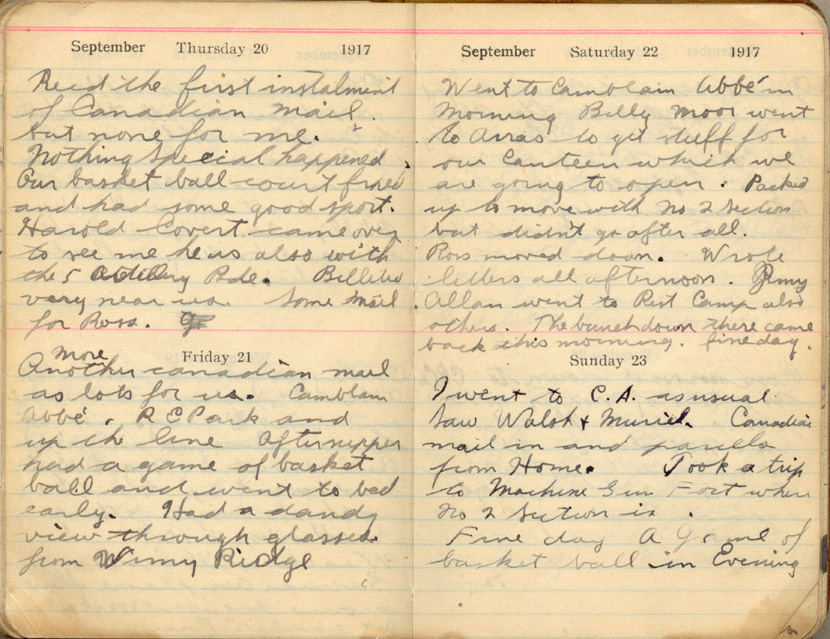 September Thursday 20 1917
Recd the first instalment
of Canadian mail.
but none for me.
Nothing special happened.
Our basket ball court fixed
and had some good sport.
Harold Covert came over
to see me he is also with
the 5 Bde. Billeted
very near us. Some mail
for Ross.
Friday 21
more
Another canadian mail
as lots for us. Camblain
Abbé. R E Park and
up the line After supper
had a game of basket
ball and went to bed
early. Had a dandy
view through glasses
from Vimy Ridge
September Saturday 22 1917
Went to Camblain Abbé in
Morning Billy Moor went
to Arras to get stuff for
our Canteen which we
are going to open. Packed
up to move with No 2 Section
but didn't go after all.
Ross moved down. Wrote
letters all afternoon. Jimmy
Allan went to Rest Camp also
others. The bunch down there came
back this morning. fine day.
Sunday 23
I went to C.A. as usual.
Saw Walsh & Muriel. Canadian
mail in and parcels
from Home. Took a trip
to Machine Gun Fort where
No 2 Section is.
Fine day A Game of
basket ball in Evening